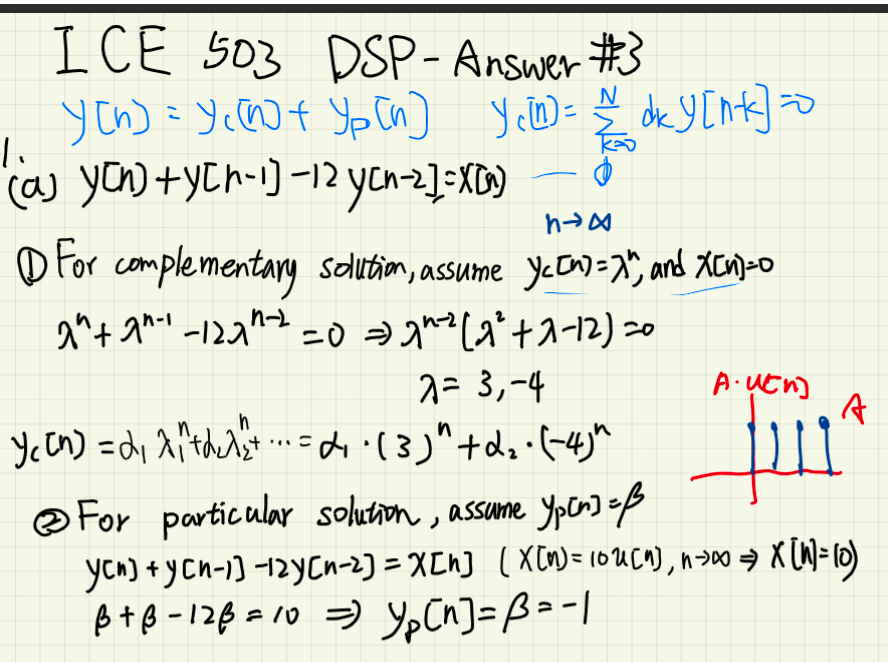 ICE 503 DSP - Answer #3
y[n] = y_c[n] + y_p[n]  y_c[n] = \sum_{k=0}^{N} d_k y[n-k] = 0
1.
(a) y[n] + y[n-1] - 12y[n-2] = x[n] —
n→∞
① For complementary solution, assume y_c[n] = λ^n, and x[n]=0
λ^n + λ^{n-1} - 12λ^{n-2} = 0 ⇒ λ^{n-2}(λ^2 + λ - 12) = 0
λ = 3, -4
A·u[n]
A
y_c[n] = α_1 λ_1^n + α_2 λ_2^n + ⋯ = α_1·(3)^n + α_2·(-4)^n
② For particular solution, assume y_p[n] = β
y[n] + y[n-1] - 12y[n-2] = x[n] (x[n] = 10u[n], n→∞ ⇒ x[n]=10)
β + β - 12β = 10 ⇒ y_p[n] = β = -1